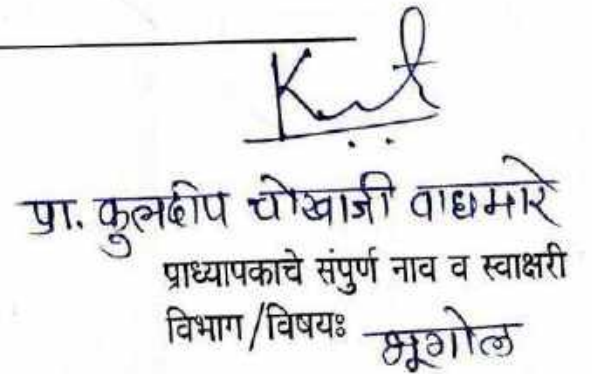 प्रा. कुलदीप चोखाजी वाघमारे
प्राध्यापकाचे संपुर्ण नाव व स्वाक्षरी
विभाग/विषयः भूगोल